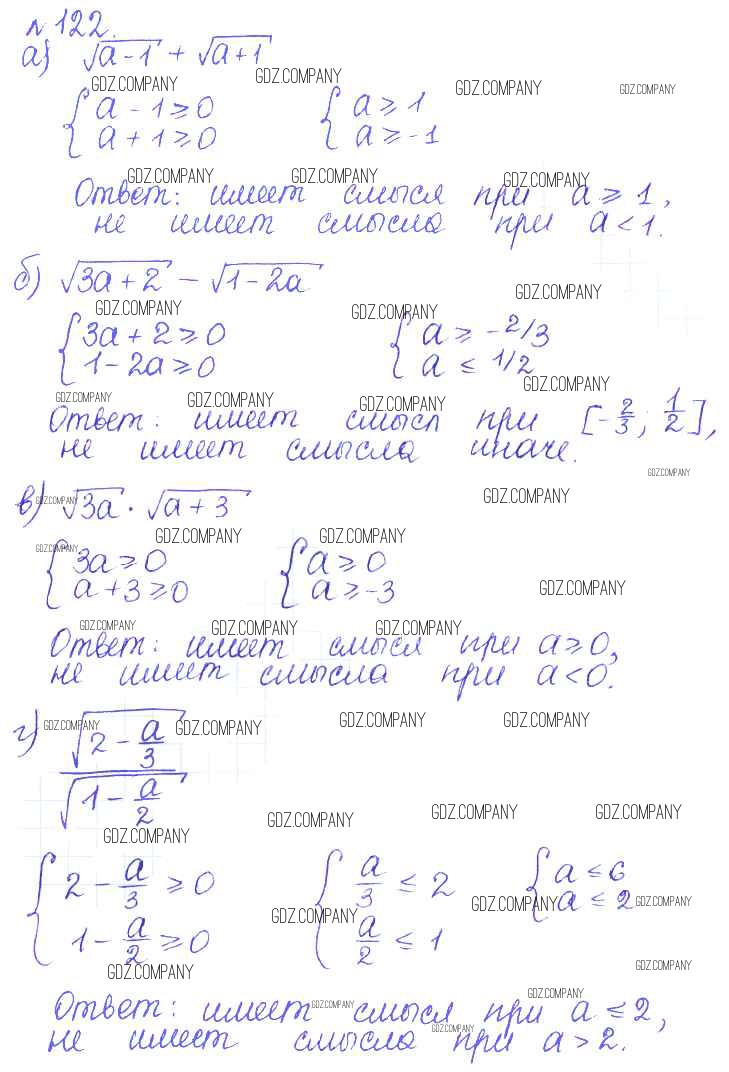 №122.
а) √(a-1) + √(a+1)
GDZ.COMPANY GDZ.COMPANY GDZ.COMPANY GDZ.COMPANY
{ a - 1 ≥ 0 { a ≥ 1
{ a + 1 ≥ 0 { a ≥ -1
GDZ.COMPANY GDZ.COMPANY GDZ.COMPANY
Ответ: имеет смысл при a ≥ 1,
не имеет смысла при a < 1.
б) √(3a+2) - √(1-2a)
GDZ.COMPANY GDZ.COMPANY GDZ.COMPANY
{ 3a + 2 ≥ 0 { a ≥ -2/3
{ 1 - 2a ≥ 0 { a ≤ 1/2
GDZ.COMPANY GDZ.COMPANY GDZ.COMPANY GDZ.COMPANY
Ответ: имеет смысл при [-2/3; 1/2],
не имеет смысла иначе.
GDZ.COMPANY
в) √(3a) · √(a+3)
GDZ.COMPANY GDZ.COMPANY
GDZ.COMPANY GDZ.COMPANY GDZ.COMPANY
{ 3a ≥ 0 { a ≥ 0
{ a + 3 ≥ 0 { a ≥ -3
GDZ.COMPANY
GDZ.COMPANY GDZ.COMPANY GDZ.COMPANY
Ответ: имеет смысл при a ≥ 0,
не имеет смысла при a < 0.
г) √(2 - a/3) / √(1 - a/2)
GDZ.COMPANY GDZ.COMPANY GDZ.COMPANY GDZ.COMPANY
GDZ.COMPANY GDZ.COMPANY GDZ.COMPANY GDZ.COMPANY
{ 2 - a/3 ≥ 0 { a/3 ≤ 2 { a ≤ 6
{ 1 - a/2 ≥ 0 { a/2 ≤ 1 { a ≤ 2
GDZ.COMPANY GDZ.COMPANY GDZ.COMPANY
GDZ.COMPANY GDZ.COMPANY
GDZ.COMPANY GDZ.COMPANY
Ответ: имеет смысл при a ≤ 2,
не имеет смысла при a > 2.
GDZ.COMPANY